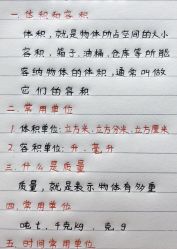 一.体积和容积
体积,就是物体所占空间的大小
容积,箱子、油桶、仓库等所能
容纳物体的体积,通常叫做
它们的容积
二.常用单位
1.体积单位:立方米、立方分米、立方厘米
2.容积单位:升、毫升
三.什么是质量
质量,就是表示物体有多重
四.常用单位
吨t,千克kg,克g
五.时间常用单位